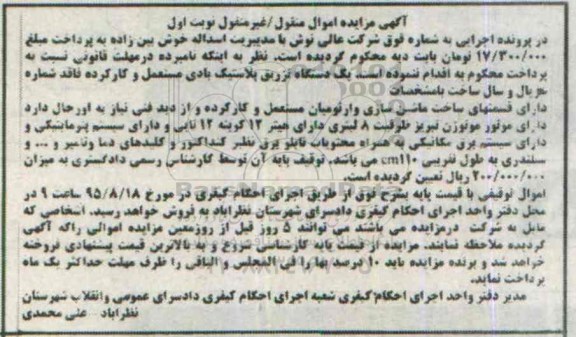 آگهی مزایده اموال منقول/غیرمنقول نوبت اول
در پرونده اجرایی به شماره فوق شرکت عالی نوش با مدیریت اسداله خوش بین زاده به پرداخت مبلغ
۱۷/۳۰۰/۰۰۰ تومان بابت دیه محکوم گردیده است. نظر به اینکه نامبرده درمهلت قانونی نسبت به
پرداخت محکوم به اقدام ننموده است. یک دستگاه تزریق پلاستیک بادی مستعمل و کارکرده فاقد شماره
سریال و سال ساخت بامشخصات
دارای قسمتهای ساخت ماشین سازی وارتومیان مستعمل و کارکرده و از دید فنی نیاز به اورحال دارد
دارای موتور موتوژن تبریز ظرفیت ۸ لیتری دارای هیتر ۱۲ کویته ۱۲ تایی و دارای سیستم پنوماتیکی و
دارای سیستم برق مکانیکی به همراه محتویات تابلو برق نظیر کنتاکتور و کلیدهای دما وتایمر و ... و
سلندری به طول تقریبی cm۱۱۰ می باشد. توقیف پایه آن توسط کارشناس رسمی دادگستری به میزان
۲۰۰/۰۰۰/۰۰۰ ریال تعیین گردیده است.
اموال توقیفی با قیمت پایه بشرح فوق از طریق اجرای احکام کیفری در مورخ ۹۵/۸/۱۸ ساعت ۹ در
محل دفتر واحد اجرای احکام کیفری دادسرای شهرستان نظرآباد به فروش خواهد رسید. اشخاصی که
مایل به شرکت درمزایده می باشند می توانند ۵ روز قبل از روزمعین مزایده اموالی راکه آگهی
گردیده ملاحظه نمایند. مزایده از قیمت پایه کارشناسی شروع و به بالاترین قیمت پیشنهادی فروخته
خواهد شد و برنده مزایده باید ۱۰ درصد بها را فی المجلس و الباقی را ظرف مهلت حداکثر یک ماه
پرداخت نماید.
مدیر دفتر واحد اجرای احکام کیفری شعبه اجرای احکام کیفری دادسرای عمومی وانقلاب شهرستان
نظرآباد علی محمدی